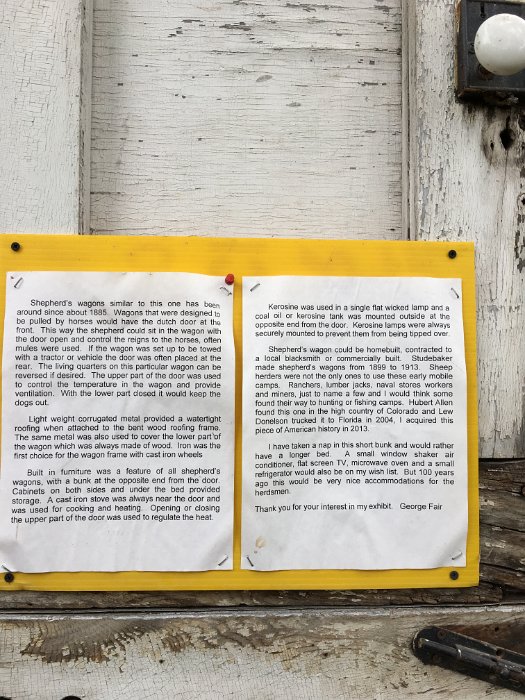 Shepherd's wagons similar to this one has been
around since about 1885. Wagons that were designed to
be pulled by horses would have the dutch door at the
front. This way the shepherd could sit in the wagon with
the door open and control the reigns to the horses, often
mules were used. If the wagon was set up to be towed
with a tractor or vehicle the door was often placed at the
rear. The living quarters on this particular wagon can be
reversed if desired. The upper part of the door was used
to control the temperature in the wagon and provide
ventilation. With the lower part closed it would keep the
dogs out.
Light weight corrugated metal provided a watertight
roofing when attached to the bent wood roofing frame.
The same metal was also used to cover the lower part of
the wagon which was always made of wood. Iron was the
first choice for the wagon frame with cast iron wheels
Built in furniture was a feature of all shepherd's
wagons, with a bunk at the opposite end from the door.
Cabinets on both sides and under the bed provided
storage. A cast iron stove was always near the door and
was used for cooking and heating. Opening or closing
the upper part of the door was used to regulate the heat.
Kerosine was used in a single flat wicked lamp and a
coal oil or kerosine tank was mounted outside at the
opposite end from the door. Kerosine lamps were always
securely mounted to prevent them from being tipped over.
Shepherd's wagon could be homebuilt, contracted to
a local blacksmith or commercially built. Studebaker
made shepherd's wagons from 1899 to 1913. Sheep
herders were not the only ones to use these early mobile
camps. Ranchers, lumber jacks, naval stores workers
and miners, just to name a few and I would think some
found their way to hunting or fishing camps. Hubert Allen
found this one in the high country of Colorado and Lew
Donelson trucked it to Florida in 2004, I acquired this
piece of American history in 2013.
I have taken a nap in this short bunk and would rather
have a longer bed. A small window shaker air
conditioner, flat screen TV, microwave oven and a small
refrigerator would also be on my wish list. But 100 years
ago this would be very nice accommodations for the
herdsmen.
Thank you for your interest in my exhibit. George Fair